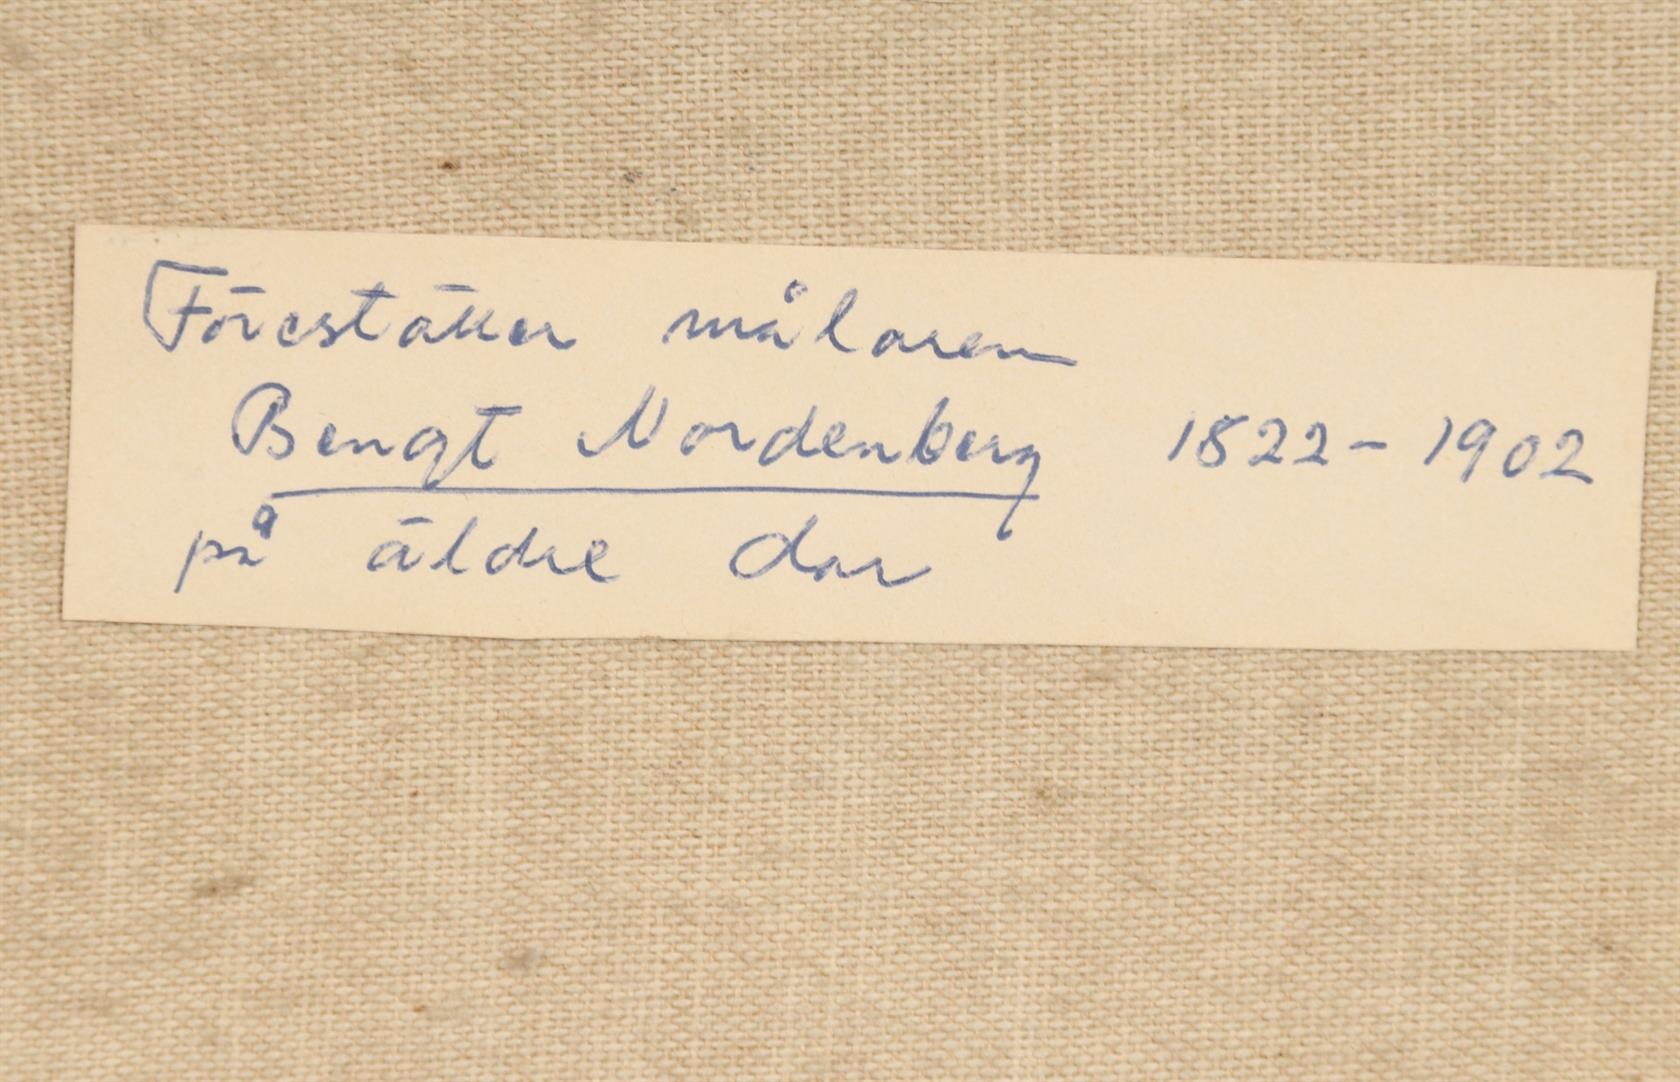 Föreställer målaren
Bengt Nordenberg 1822-1902
på äldre dar